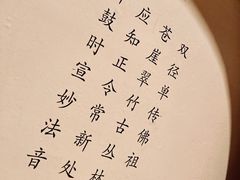 双径单传佛祖
苍崖翠竹古丛林
应知正令常新处
鼓时宣妙法音